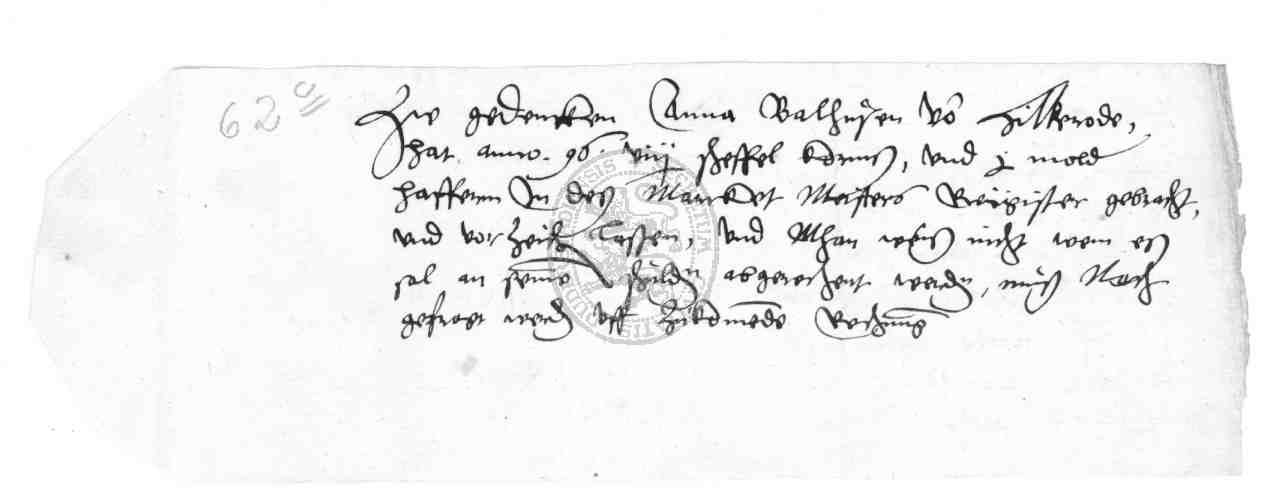 62a
Zu gedencken Anna Balhusen vo Hilkerode,
hat anno 96 viij scheffel korns, und j mold
haffern In des Marckt Meisters Register gebracht,
und vorzeichn lassen, und Mhan weis nicht wem es
sal an seine schuldn abgerechent werdn, mus Nach
gefraget werdn uff zukomede Rechnung